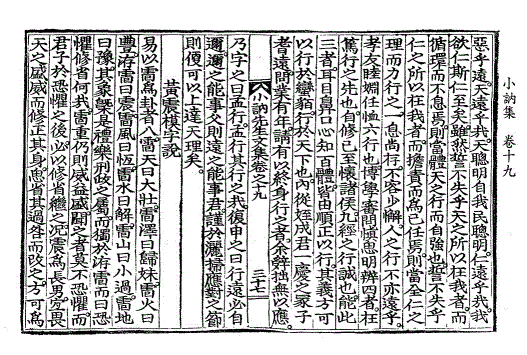 小訥集 卷十九
惡乎遠天遠乎我天聰明自我民聰明仁遠乎我我
欲仁斯仁至矣雖然誓不失乎天之所以在我者而
循環而不息焉則當體天之行而自強也誓不失乎
仁之所以在我者而擔責而爲己任焉則當全仁之
理而力行之一息尙存不容少懈人之行不亦遠乎
孝友睦婣任恤六行也博學審問愼思明辨四者在
篤行之先也自修已至懷諸侯九經之行誠也能此
三者耳目鼻口心知百體皆由順正以行其義方可
以行於蠻貊行於天下也內從姪成君一慶之冡子
者遠問業有年請有以終身行之者不辭拙無以應
乃字之曰孟行孟行其行之我復申之曰行遠必自
邇邇之能事父則遠之能事君謹於灑掃應對之節
則便可以上達天理矣
黃震模字說
易以雷爲卦者八雷天曰大壯雷澤曰歸妹雷火曰
豐洊雷曰震雷風曰恆雷水曰解雷山曰小過雷地
曰豫其象繇是禮樂刑政之屬而獨於洊雷而曰恐
懼修省何哉雷重仍則威益盛聞之者莫不恐懼而
君子於恐懼之後必以修省繼之況震爲長男克畏
天之威威而修正其身思省其過咎而改之方可爲
小訥先生文集卷之十九
三十七